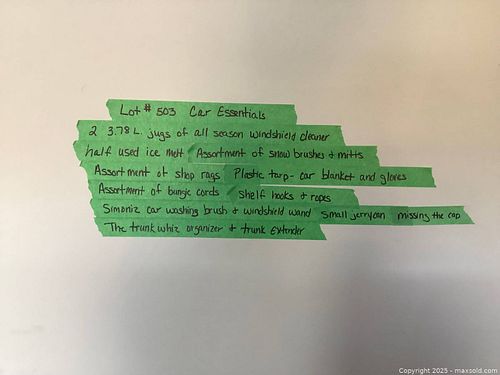 Lot # 503 Car Essentials
2 3.78 L. jugs of all season windshield cleaner
half used ice melt Assortment of snow brushes & mitts
Assortment of shop rags Plastic tarp - car blanket and gloves
Assortment of bungie cords Shelf hooks & ropes
Simoniz car washing brush & windshield wand Small jerrycan missing the cap
The trunk whiz organizer & trunk extender
Copyright 2025 - maxsold.com